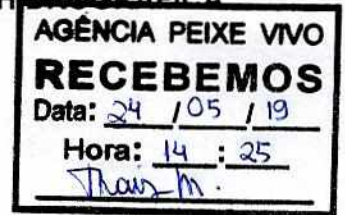 AGÊNCIA PEIXE VIVO
RECEBEMOS
Data: 24 / 05 / 19
Hora: 14 : 25
Thais M.